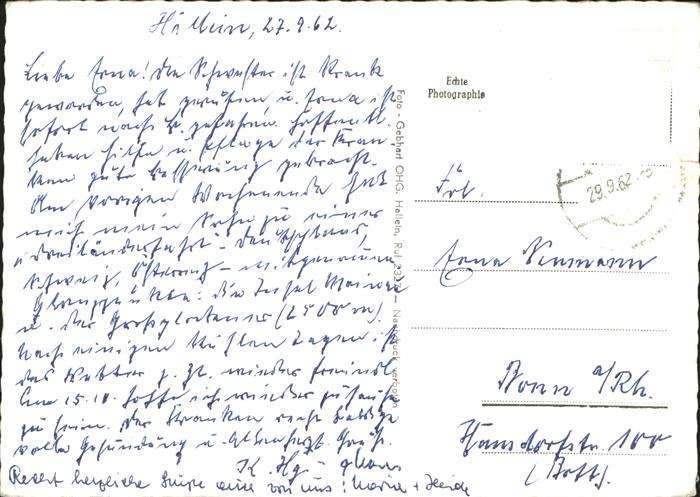 Hallein, 27.9.62.
Liebe Erna! Die Schwester ist krank
geworden, hat gerufen, u. Erna ist
sofort nach B. gefahren. Hoffentl.
haben Hilfe u. Pflege der Kran-
ken gute Besserung gebracht.
Am vorigen Wochenende hat
mich mein Sohn zu einer
Dreiländerfahrt – Deutschland,
Schweiz, Österreich – mitgenommen
Glanzpunkte: die Insel Mainau
u. der Großglockner (2500 m).
Nach einigen kühlen Tagen ist
das Wetter z. Zt. wieder freundl.
Am 15.10. hoffe ich wieder zu Hause
zu sein. Der Kranken recht baldige
volle Gesundung u. allerherzl. Grüße.
K. Hg.
Recht herzliche Grüße auch von uns: Maria + Heide
Echte
Photographie
Foto - Gebhart OHG, Hallein, Ruf — Nachdruck verboten
29.9.62
Frl.
Erna Neumann
Bonn a/Rh.
100